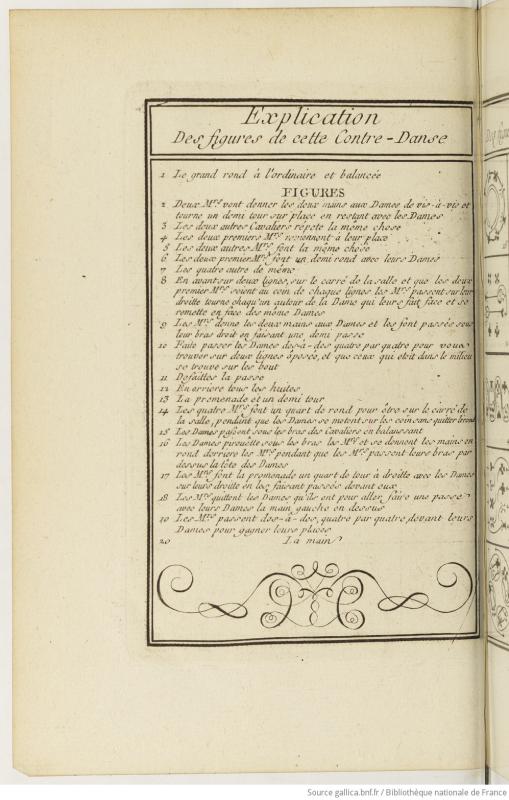 Explication
Des figures de cette Contre-Danse
1 Le grand rond à l'ordinaire et balancée
FIGURES
2 Deux Mrs vont donner les deux mains aux Dames de vis-à-vis et
tourne un demi tour sur place en restant avec les Dames
3 Les deux autres Cavaliers répete la même chose
4 Les deux premiers Mrs reviennent à leur place
5 Les deux autres Mrs font la même chose
6 Les deux premier Mrs font un demi rond avec leurs Dames
7 Les quatre autre de même
8 En avant sur deux lignes, sur le carré de la salle et que les deux
premier Mrs soient au coin de chaque lignes les Mrs passent sur leur
droitte tourne chaqu'un autour de la Dame qui leurs fait face et se
remette en face des même Dames
9 Les Mrs donne les deux mains aux Dames et les font passés sous
leur bras droit en faisant une demi passe
10 Faite passer les Dames dos-à-dos quatre par quatre pour vous
trouver sur deux lignes oposée, et que ceux qui etoit dans le milieu
se trouve sur les bout
11 Defaittes la passe
12 En arriere tous les huites
13 La promenade et un demi tour
14 Les quatre Mrs font un quart de rond pour être sur le carré de
la salle, pendant que les Dames se metent sur les coin sans quitter
15 Les Dames passent sous les bras des Cavaliers en balanssant
16 Les Dames pirouette sous les bras les Mrs et se donnent les mains en
rond derriere les Mrs pendant que les Mrs passent leurs bras par
dessus la tête des Dames
17 Les Mrs font la promenade un quart de tour à droitte avec les Dames
sur leurs droitte en les faisant passés devant eux
18 Les Mrs quittent les Dames qu'ils ont pour aller faire une passe
avec leurs Dames la main gauche en dessus
19 Les Mrs passent dos-à-dos, quatre par quatre, devant leurs
Dames pour gagner leurs places
20 La main
Source gallica.bnf.fr / Bibliothèque nationale de France